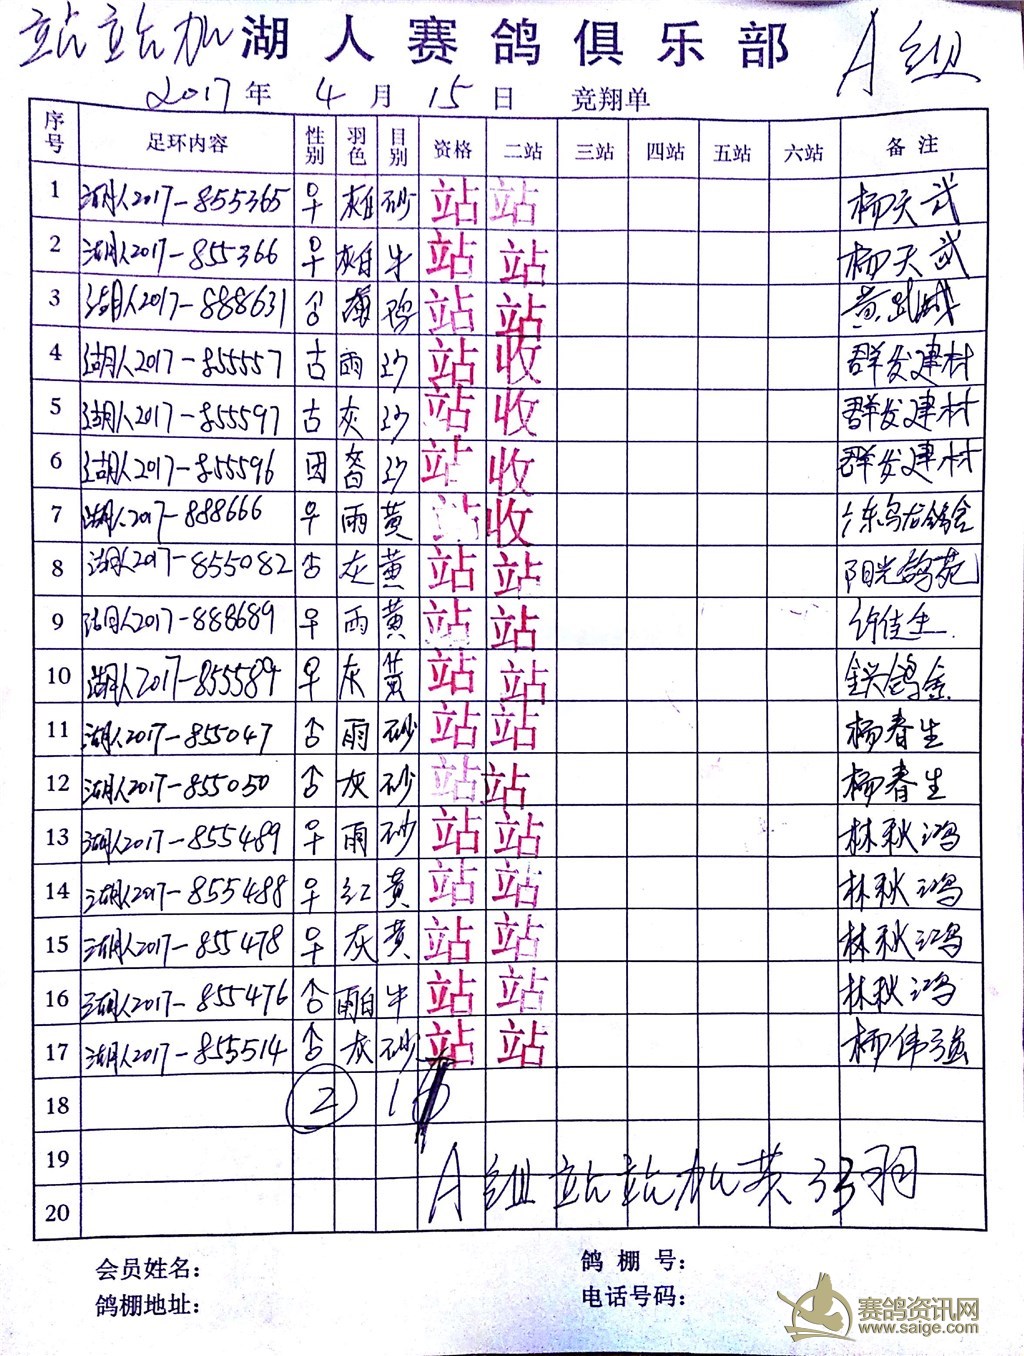 站站加 湖人赛鸽俱乐部 A组
2017年 4月 15日 竞翔单
序号 足环内容 性别 羽色 目别 资格 二站 三站 四站 五站 六站 备注
1 湖人2017-855365 早 灰白 砂 站 站 杨天武
2 湖人2017-855366 早 灰白 牛 站 站 杨天武
3 湖人2017-888631 站 站
4 湖人2017-855557 古 雨 沙 站 收 群发建材
5 湖人2017-855597 古 灰 沙 站 收 群发建材
6 湖人2017-855596 沙 站 收 群发建材
7 湖人2017-888666 早 雨 黄 站 收
8 湖人2017-855082 灰 黄 站 站 阳光鸽苑
9 湖人2017-888689 早 雨 黄 站 站 许佳生
10 湖人2017-855589 早 灰 黄 站 站
11 湖人2017-855047 雨 砂 站 站 杨春生
12 湖人2017-855050 灰 砂 站 站 杨春生
13 湖人2017-855489 早 雨 砂 站 站 林秋鸿
14 湖人2017-855488 早 红 黄 站 站 林秋鸿
15 湖人2017-855478 早 灰 黄 站 站 林秋鸿
16 湖人2017-855476 雨白 牛 站 站 林秋鸿
17 湖人2017-855514 灰 砂 站 站 杨伟强
18 2
19
20 A组站站加共 羽
会员姓名： 鸽棚号：
鸽棚地址： 电话号码：
赛鸽资讯网
www.saige.com